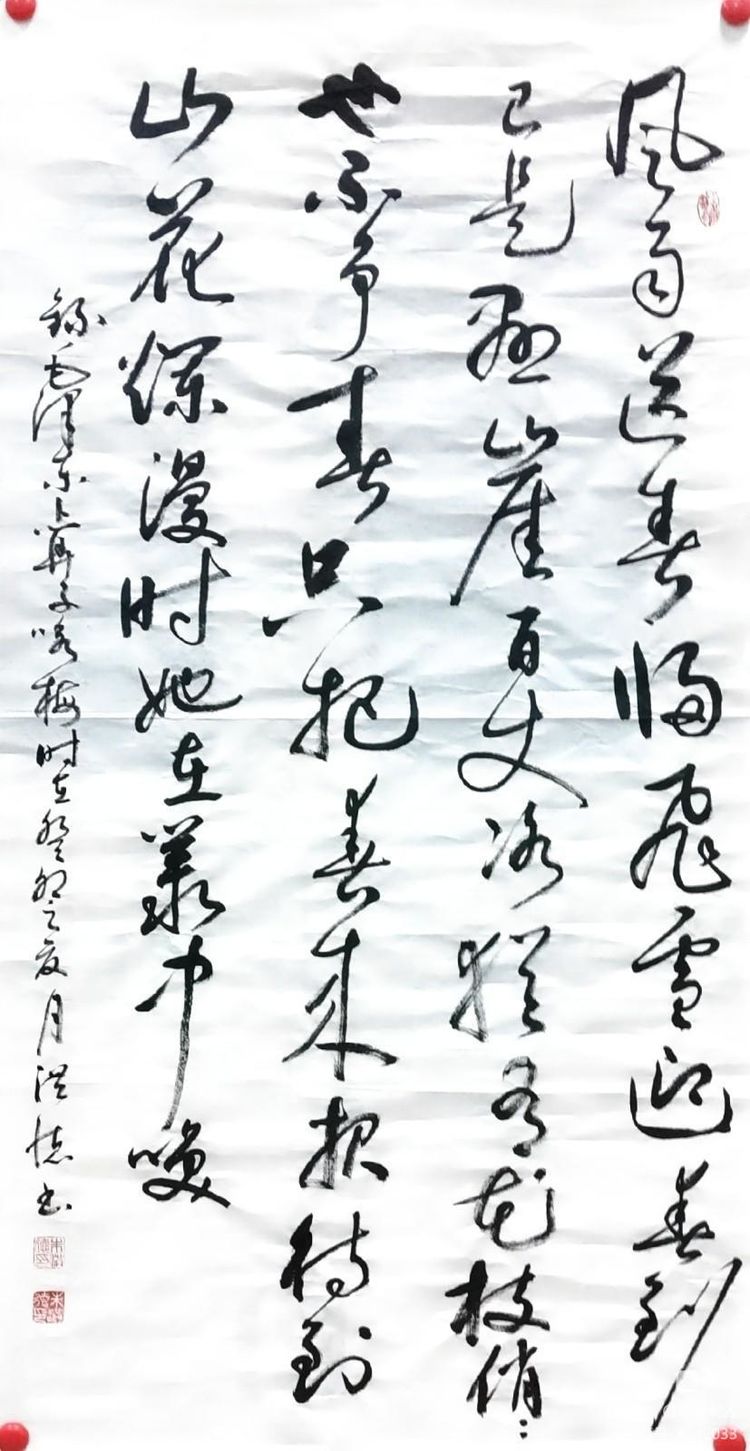 风雨送春归飞雪迎春到
已是悬崖百丈冰犹有花枝俏：
也不争春只把春来报待到
山花烂漫时她在叢中咲
録毛泽东卜算子咏梅时在癸卯之夏月洪书
033